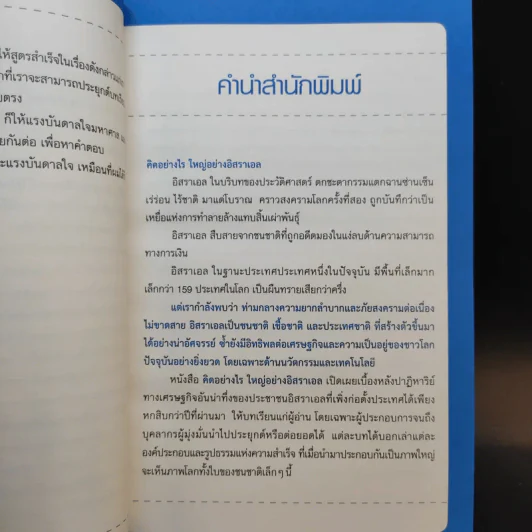 ให้สูตรสำเร็จในเรื่องดังกล่าว
ที่เราจะสามารถประยุกต์
ตรง
ก็ให้แรงบันดาลใจมหาศาล
กันต่อ เพื่อหาคำตอบ
ะแรงบันดาลใจ เหมือนที่ผมได้
คำนำสำนักพิมพ์
คิดอย่างไร ใหญ่อย่างอิสราเอล
อิสราเอล ในบริบทของประวัติศาสตร์ ตกชะตากรรมแตกฉานซ่านเซ็น
เร่ร่อน ไร้ชาติ มาแต่โบราณ คราวสงครามโลกครั้งที่สอง ถูกบันทึกว่าเป็น
เหยื่อแห่งการทำลายล้างแทบสิ้นเผ่าพันธุ์
อิสราเอล สืบสายจากชนชาติที่ถูกอดีตมองในแง่ลบด้านความสามารถ
ทางการเงิน
อิสราเอล ในฐานะประเทศประเทศหนึ่งในปัจจุบัน มีพื้นที่เล็กมาก
เล็กกว่า 159 ประเทศในโลก เป็นผืนทรายเสียกว่าครึ่ง
แต่เรากำลังพบว่า ท่ามกลางความยากลำบากและภัยสงครามต่อเนื่อง
ไม่ขาดสาย อิสราเอลเป็นชนชาติ เชื้อชาติ และประเทศชาติ ที่สร้างตัวขึ้นมา
ได้อย่างน่าอัศจรรย์ ซ้ำยังมีอิทธิพลต่อเศรษฐกิจและความเป็นอยู่ของชาวโลก
ปัจจุบันอย่างยิ่งยวด โดยเฉพาะด้านนวัตกรรมและเทคโนโลยี
หนังสือ คิดอย่างไร ใหญ่อย่างอิสราเอล เปิดเผยเบื้องหลังปาฏิหาริย์
ทางเศรษฐกิจอันน่าทึ่งของประชาชนอิสราเอลที่เพิ่งก่อตั้งประเทศได้เพียง
หกสิบกว่าปีที่ผ่านมา ให้บทเรียนแก่ผู้อ่าน โดยเฉพาะผู้ประกอบการจนถึง
บุคลากรผู้มุ่งมั่นนำไปประยุกต์หรือต่อยอดได้ แต่ละบทได้บอกเล่าแต่ละ
องค์ประกอบและรูปธรรมแห่งความสำเร็จ ที่เมื่อนำมาประกอบกันเป็นภาพใหญ่
จะเห็นภาพโลกทั้งใบของชนชาติเล็กๆ นี้